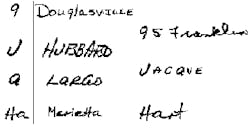 9 Douglasville
95 Franklin
J HUBBARD
a LARGO JACQUE
Ha Marietta Hart